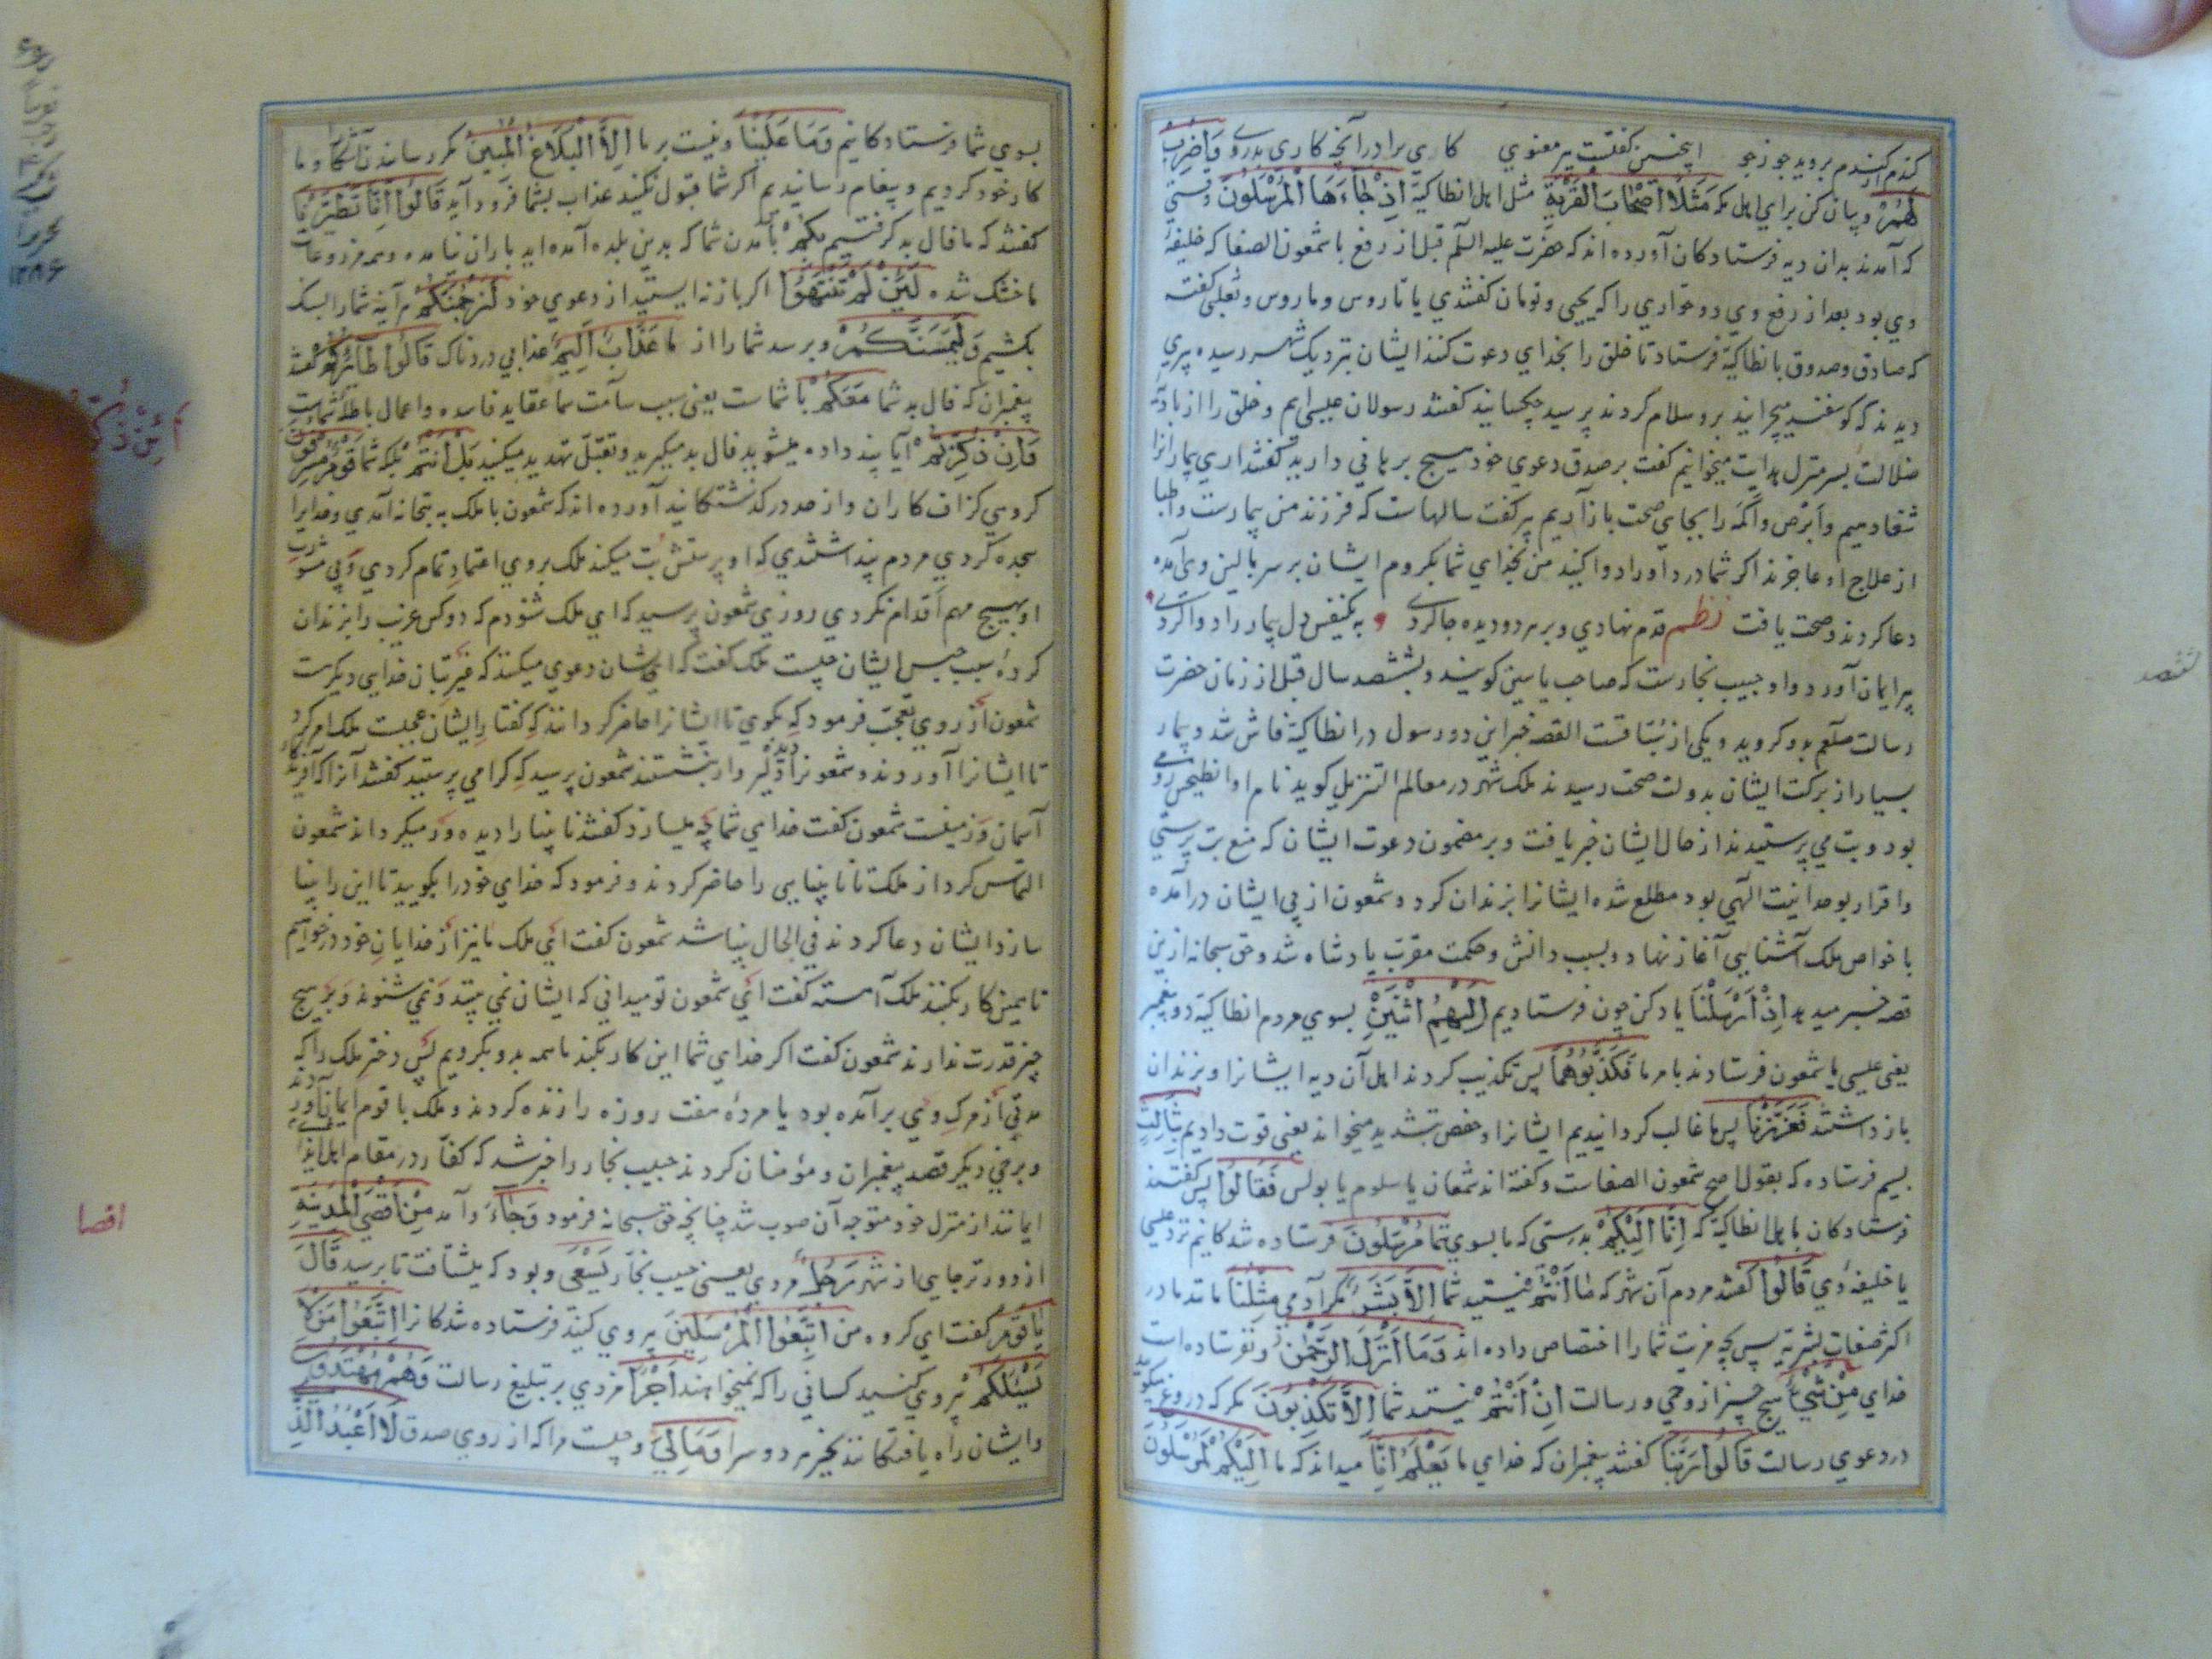 گندم از گندم بروید جو ز جو اینچنین گفتست پیر معنوی کای برادر آنچه کاری بدروی وَاضْرِبْ
لَهُمْ و بیان کن برای اهل مکه مَثَلًا اَصْحَابَ الْقَرْیَةِ مثل اهل انطاکیة اِذْ جَاءَهَا الْمُرْسَلُونَ وقتی
که آمدند بدان دیه فرستادکان آورده اند که حضرت علیه السلم قبل از رفع یا شمعون الصفا که خلیفهٔ
وی بود بعد از رفع وی دو حواری را که یحیی و تومان کفتندی یا تاروس و ماروس و ثعلبی کفته
که صادق و صدوق بانطاکیة فرستاد تا خلق را بخدای دعوت کنند ایشان بنزدیک شهر رسیده پیری
دیدند که کوسفند میچرانید برو سلام کردند پرسید چه کسانید کفتند رسولان عیسی ایم و خلق را از بادیهٔ
ضلالت بسر منزل هدایت میخوانیم کفت بر صدق دعوی خود هیچ برهانی دارید کفتند آری بیمارانرا
شفا دهیم و ابرص و اکمه را بجای صحت باز آریم پیر کفت سالهاست که فرزند من بیمارست و اطبا
از علاج او عاجزند اکر شما درد او را دوا کنید من بخدای شما بکروم ایشان بر سر بالین وی آمده
دعا کردند و صحت یافت نظم قدم نهادی و بر هر دو دیده جا کردی به یکنفس دل بیمار را دوا کردی
پیر ایمان آورد و او حبیب نجارست که صاحب یاسین کویند و بششصد سال قبل از زمان حضرت
رسالت صلعم بدو کروید و یکی از سُبّاقست القصه خبر این دو رسول در انطاکیة فاش شد و بیمار
بسیار از برکت ایشان بدولت صحت رسیدند ملک شهر در معالم التنزیل کوید نام او انطیحس رومی
بود و بت می پرستیدند از حال ایشان خبر یافت و بر مضمون دعوت ایشان که منع بت پرستی
و اقرار بوحدانیت الهی بود مطلع شده ایشانرا بزندان کرد و شمعون از پی ایشان در آمده
با خواص ملک آشنایی آغاز نهاد و بسبب دانش و حکمت مقرب پادشاه شد و حق سبحانه ازین
قصه خبر میدهد اِذْ اَرْسَلْنَا یاد کن چون فرستادیم اِلَیْهِمُ اثْنَیْنِ بسوی مردم انطاکیة دو پیغمبر
یعنی عیسی یا شمعون فرستادند بامر ما فَکَذَّبُوهُمَا پس تکذیب کردند اهل آن دیه ایشانرا و بزندان
باز داشتند فَعَزَّزْنَا پس ما غالب کردانیدیم ایشانرا و حفص بتشدید میخواند یعنی قوت دادیم بِثَالِثٍ
بسیم فرستاده که بقول اصح شمعون الصفاست و کفته اند شمعان یا سلوم یا بولس فَقَالُوا پس کفتند
فرستادکان باهل انطاکیة که اِنَّا اِلَیْکُمْ بدرستی که ما بسوی شما مُرْسَلُونَ فرستاده شدکانیم نزد عیسی
یا خلیفهٔ وی قَالُوا کفتند مردم آن شهر که مَا اَنْتُمْ نیستید شما اِلَّا بَشَرٌ مکر آدمی مِثْلُنَا مانند ما در
اکثر صفات بشریة پس بچه مزیت شما را اختصاص داده اند وَمَا اَنْزَلَ الرَّحْمٰنُ و نفرستاده است
خدای مِنْ شَیْءٍ هیچ چیز از وحی و رسالت اِنْ اَنْتُمْ نیستید شما اِلَّا تَکْذِبُونَ مکر که دروغ میکویید
در دعوی رسالت قَالُوا رَبُّنَا کفتند پیغمبران که خدای ما یَعْلَمُ اِنَّا میداند که ما اِلَیْکُمْ لَمُرْسَلُونَ
بسوی شما فرستادکانیم وَمَا عَلَیْنَا و نیست بر ما اِلَّا الْبَلَاغُ الْمُبِینُ مکر رسانیدن آشکارا و ما
کار خود کردیم و پیغام رسانیدیم اکر شما قبول نکنید عذاب بشما فرود آید قَالُوا اِنَّا تَطَیَّرْنَا
کفتند که ما فال بد کرفتیم بِکُمْ بآمدن شما که بدین بلده آمده اید باران نیامده و مزروعات
ما خشک شده لَئِنْ لَمْ تَنْتَهُوا اکر باز نه ایستید از دعوی خود لَنَرْجُمَنَّکُمْ هر آینه شما را بسنک
بکشیم وَلَیَمَسَّنَّکُمْ و برسد شما را از ما عَذَابٌ اَلِیمٌ عذابی دردناک قَالُوا طَائِرُکُمْ کفتند
پیغمبران که فال بد شما مَعَکُمْ با شماست یعنی سبب شآمت شما عقاید فاسده و اعمال باطلهٔ شماست
اَئِنْ ذُکِّرْتُمْ آیا پند داده میشوید فال بد میکیرید و بقتل تهدید میکنید بَلْ اَنْتُمْ بلکه شما قَوْمٌ مُسْرِفُونَ
کروهی کزاف کاران و از حد درکذشتکانید آورده اند که شمعون با ملک به بتخانه آمدی و خدایرا
سجده کردی مردم پنداشتندی که او پرستش بت میکند ملک بر وی اعتماد تمام کردی و بی مشورت
او بهیچ مهم اقدام نکردی روزی شمعون پرسید که ای ملک شنودم که دو کس غریب را بزندان
کردهٔ سبب حبس ایشان چیست ملک کفت که ایشان دعوی میکنند که غیر بتان خدایی دیکرست
شمعون از روی تعجب فرمود که بکوی تا ایشانرا حاضر کردانند که کفتار ایشان عجبست ملک امر کرد
تا ایشانرا آوردند و شمعونرا دیده دلیروار بنشستند شمعون پرسید که کرا می پرستید کفتند آنرا که آفرینندهٔ
آسمان و زمینست شمعون کفت خدای شما چه میسازد کفتند نابینا را دیده ور میکرداند شمعون
التماس کرد از ملک تا نابینایی را حاضر کردند و فرمود که خدای خود را بکویید تا این را بینا
سازد ایشان دعا کردند فی الحال بینا شد شمعون کفت ای ملک ما نیز از خدایان خود درخواهیم
تا همین کار بکنند ملک آهسته کفت ای شمعون تو میدانی که ایشان نمی بینند و نمی شنوند و بر هیچ
چیز قدرت ندارند شمعون کفت اکر خدای شما این کار بکند ما همه بدو بکرویم پس دختر ملک را که
مدتی از مرک وی برآمده بود یا مردهٔ هفت روزه را زنده کردند و ملک با قوم ایمان آوردند
و برخی دیکر قصد پیغمبران و مؤمنان کردند حبیب نجار را خبر شد که کفار در مقام ایذای اهل
ایمانند از منزل خود متوجه آن صوب شد چنانچه حق سبحانه فرمود وَجَاءَ و آمد مِنْ اَقْصَی الْمَدِینَةِ
از دورتر جایی از شهر رَجُلٌ مردی یعنی حبیب نجار یَسْعٰی و بود که میشتافت تا برسید قَالَ
یَا قَوْمِ کفت ای کروه من اتَّبِعُوا الْمُرْسَلِینَ پیروی کنید فرستاده شدکانرا اتَّبِعُوا مَنْ لَا
یَسْئَلُکُمْ پیروی کنید کسانی را که نمیخواهند اَجْرًا مزدی بر تبلیغ رسالت وَهُمْ مُهْتَدُونَ
و ایشان راه یافتکانند بخیر هر دو سرا وَمَا لِیَ و چیست مرا که از روی صدق لَا اَعْبُدُ الَّذِی
اقصا